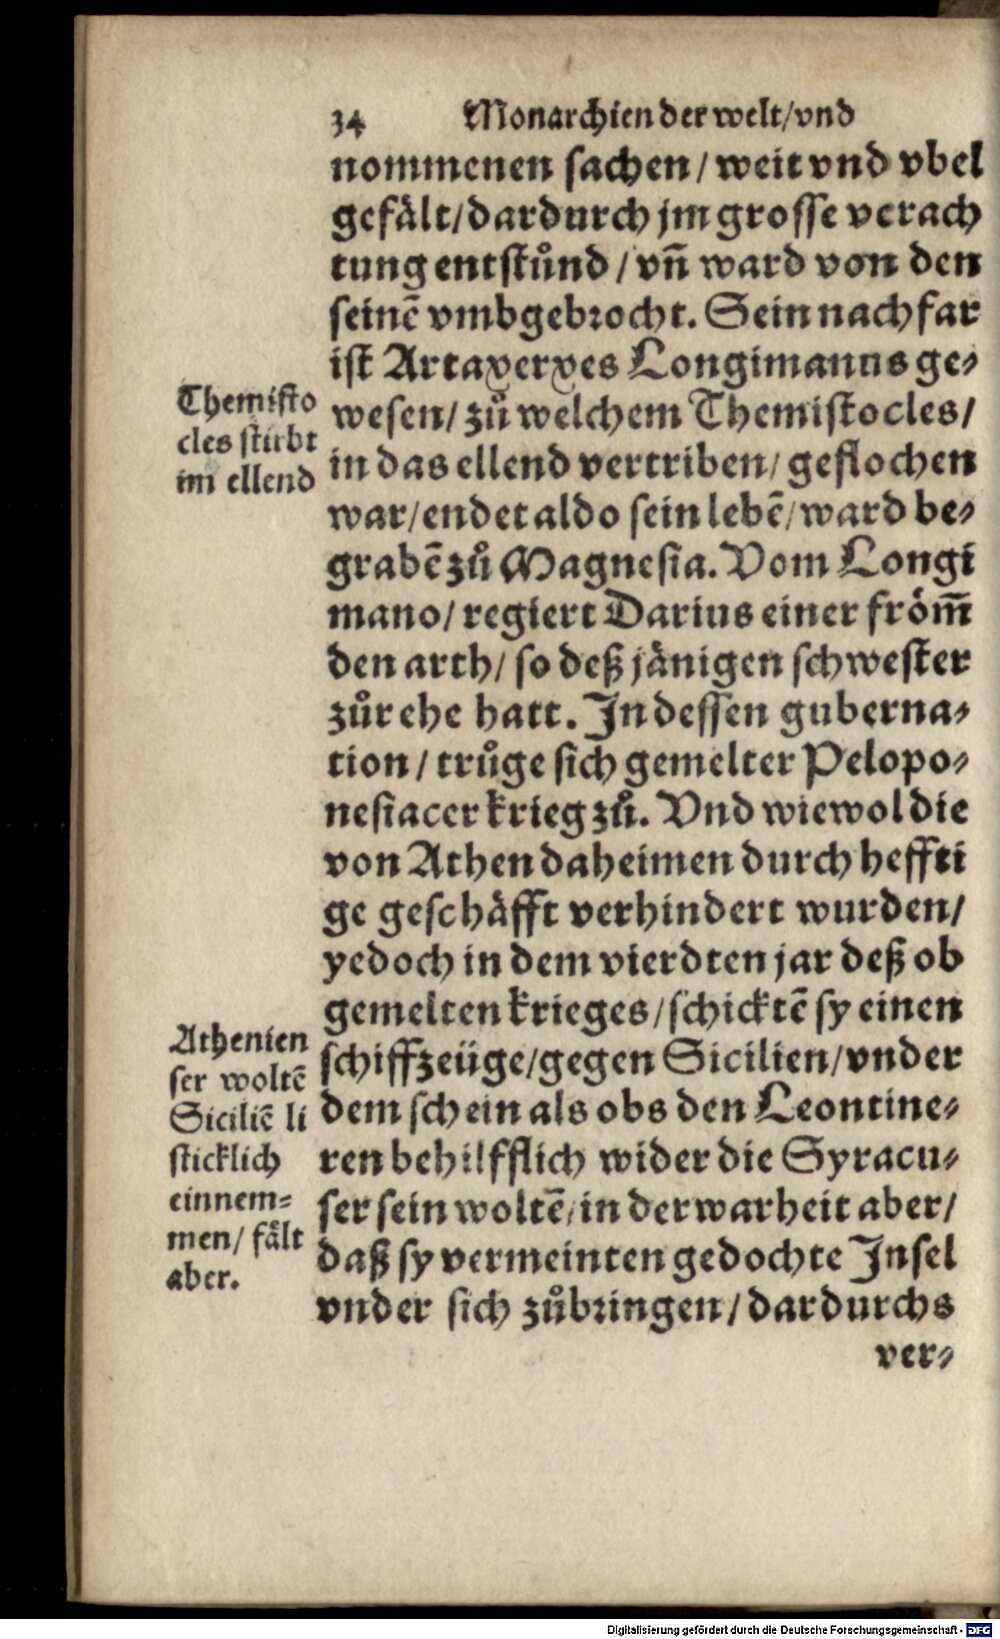 34 Monarchien der welt/vnd
nommenen sachen/weit vnd vbel
gefålt/dardurch jm grosse verach
tung entstůnd/vñ ward von den
seinē vmbgebrocht. Sein nachfar
ist Artaxerxes Longimanus ge-
wesen/zů welchem Themistocles/
in das ellend vertriben/geflochen
war/endet aldo sein lebē/ward be-
grabē zů Magnesia. Vom Longi
mano/regiert Darius einer fröm̄
den arth/so deß jånigen schwester
zůr ehe hatt. In dessen guberna-
tion/trůge sich gemelter Pelopo-
nesiacer krieg zů. Vnd wiewol die
von Athen daheimen durch heffti
ge geschåfft verhindert wurden/
yedoch in dem vierdten jar deß ob
gemelten krieges/schicktē sy einen
schiffzeüge/gegen Sicilien/vnder
dem schein als obs den Leontine-
ren behilfflich wider die Syracu-
ser sein woltē/in der warheit aber/
daß sy vermeinten gedochte Insel
vnder sich zůbringen/dardurchs
ver-
Themisto
cles stirbt
im ellend
Athenien
ser woltē
Siciliē li
sticklich
einnem-
men/fålt
aber.
Digitalisierung gefördert durch die Deutsche Forschungsgemeinschaft - DFG